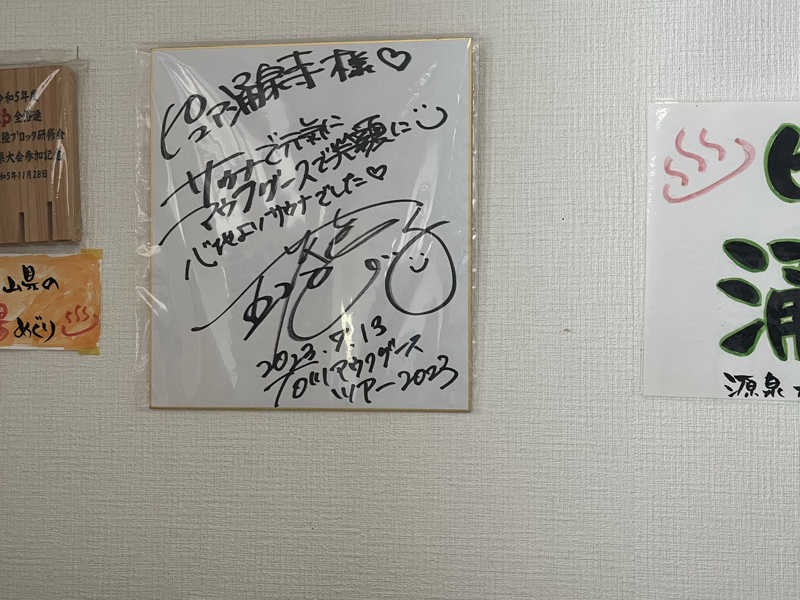 令和5年度
全浴連
陸ブロック研修会
県大会参加記念
令和5年11月28日
山県の
湯めぐり
ピュアン涌泉寺様♡
サウナで元気に
アウフグースで笑顔に
心地よいサウナでした♡
2023.9.13
アウフグース
ツアー2023
ピ
涌
源泉